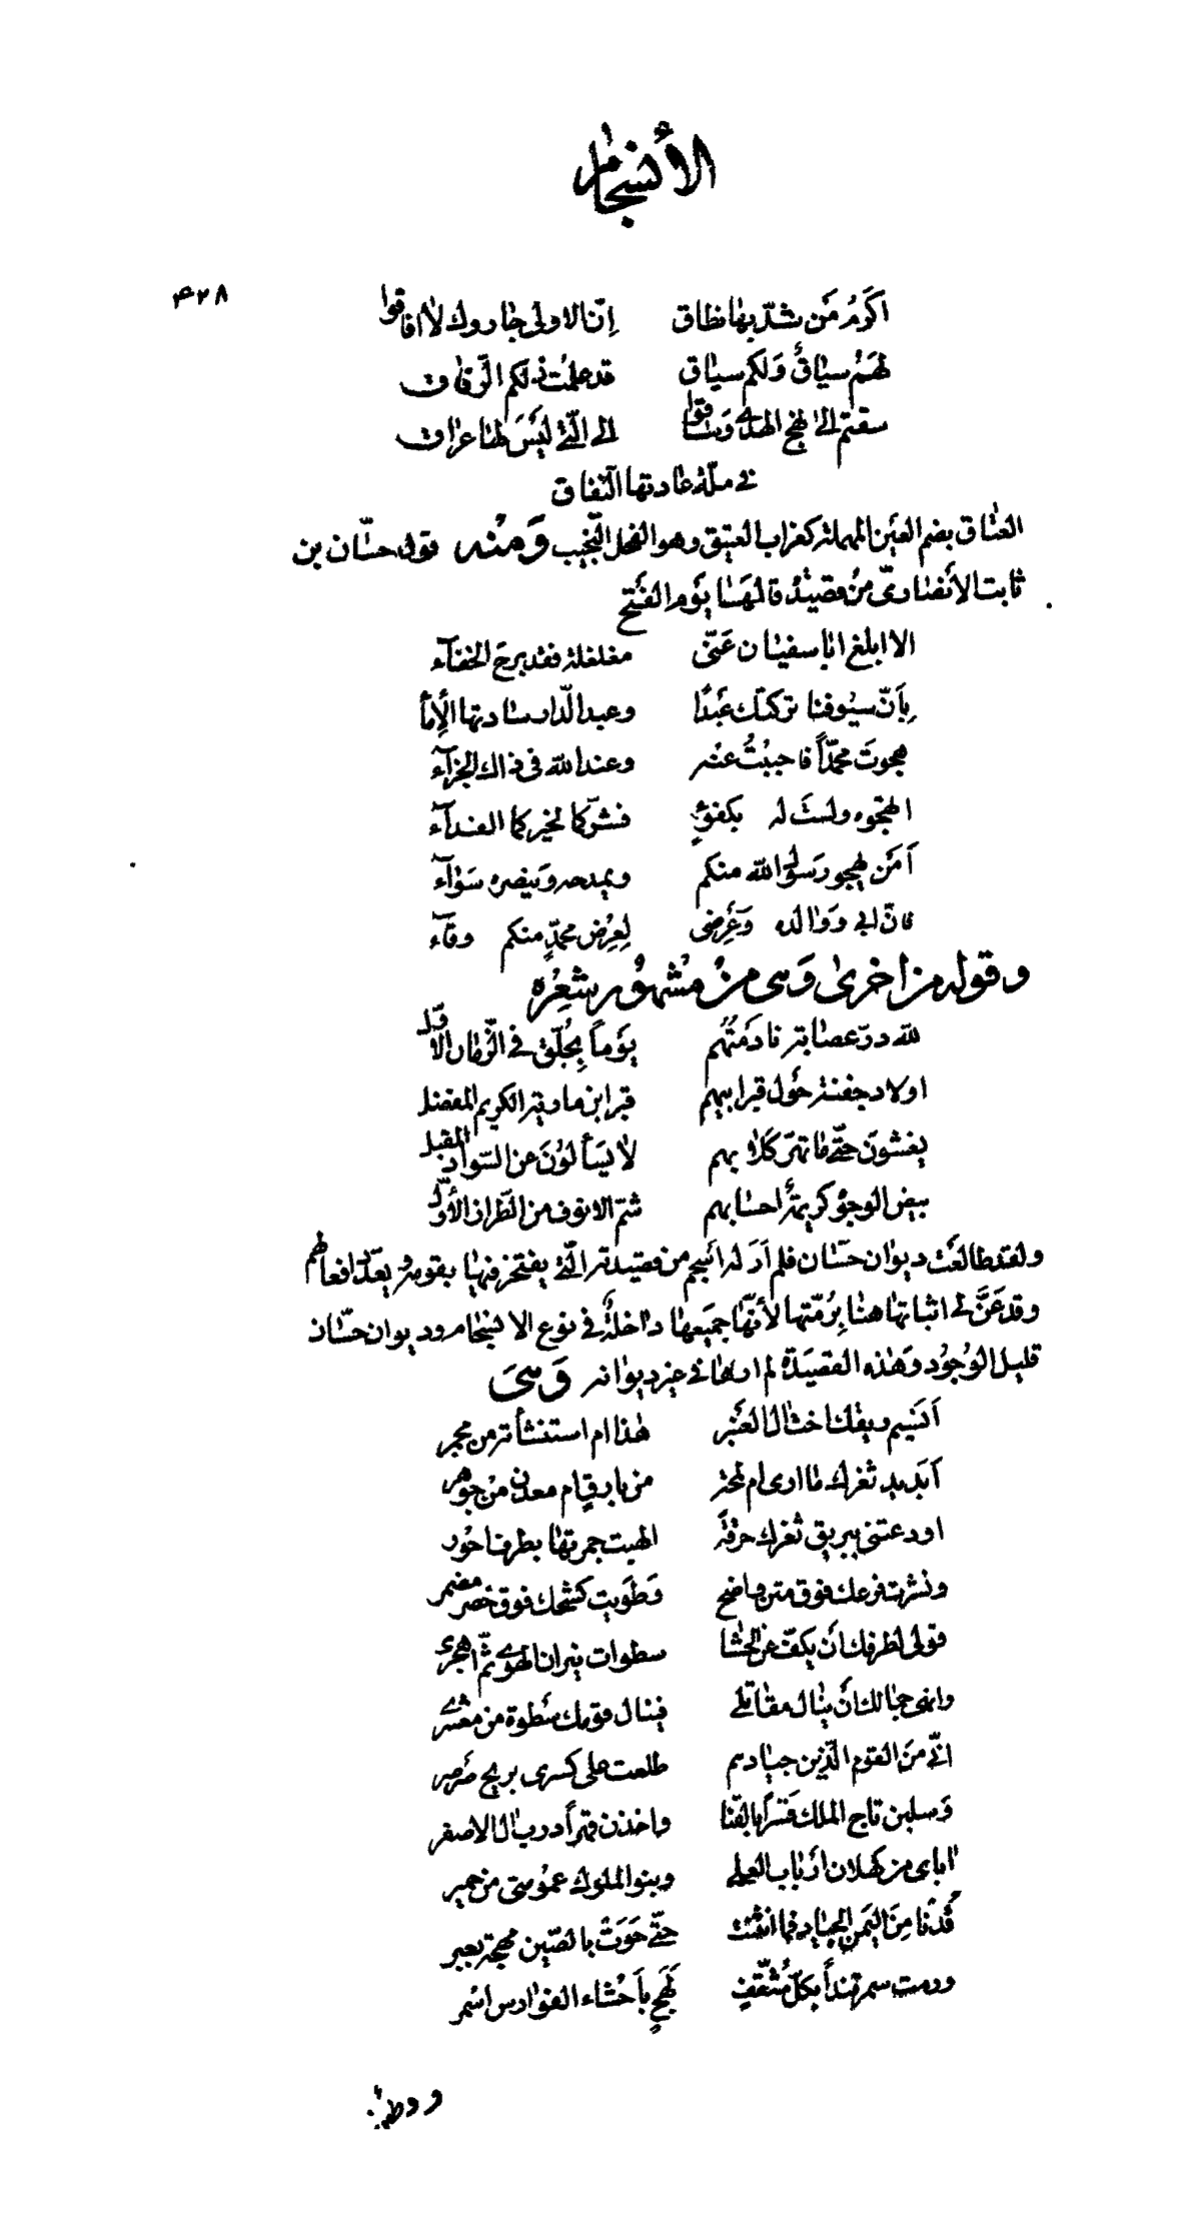 الأنسجام
۴۲۸
اكرمُ مَن شدّ بها نطاق إنّ الاولى جاروك لا افاقوا
لهم سياقٌ وَلكم سياق قد علمت ذلكم الرّفاق
سقتم الى نهج الهدى وساقوا الى الّتى ليسَ لها عراق
فى ملّة عادتها النّفاق
العتاق بضم العين المهملة كغراب العتيق وهو الفحل النّجيب وَمنه قول حسّان بن
ثابت الأنصارىّ من قصيدة قالها يوم الفتح
الا ابلغ ابا سفيان عَنّى مغلغلة فقد برحَ الخفآء
بِأنّ سيوفنا تركتك عَبْدًا وعبد الدّار سادتها الأِمآ
هجوتَ محمّداً فاجبْتُ عنه وعند الله فى ذاك الجزآء
اتهجوه ولستَ له بكفوٍ فشرّكما لخيركما الفدآء
أمَن يهجو رَسول الله منكم ويمدحه وَينصره سَوٰآء
فانّ ابى وَوَالده وَعِرضى لِعِرْض محمّدٍ منكم وقآء
وقوله من اخرىٰ وَهى من مُشهوُر شعِره
لله درّ عصابة نادَمتُهُم يَوماً بِجلّق فى الزّمان الاوّل
اولاد جفنة حَول قبر ابيهم قبر ابن مارية الكريم المفضل
يغشونَ حتّى ما تهرّ كلابهم لا يَسألوُنَ عن السّواد المقبل
بيض الوجوُه كريمةٌ احسابهم شمّ الانوف من الطّراز الأوّل
ولقد طالعت ديوان حسّان فلم أرَ له انسجم من قصيدته الّتى يفتخر فيها بقومه ويعدّ افعالهم
وقد عَنَّ لى اثباتها هنا بِرُمّتها لأنّها جميعها داخلةٌ فى نوع الانسجام وديوان حسّان
قليل الوُجوُد وَهذه القصيَدة لم ارها فى غير ديوانه وَهىَ
أنسيم ريقك اخت آل العنبر هذا ام استنشأته من مجمر
أبديد ثغرك ما ارى ام لمحة من بارقٍ ام معدن من جوهر
اودعتنى ببريق ثغرك حرقة الهبت جمرتها بطرف احور
ونشرت فرعك فوق متن واضح وَطويت كشحك فوق خصر مضمر
قولى لطرفك أن يكفّ عن الحشا سطوات نيران الهوى ثمّ اهجرى
وانهى جمالك أن ينال مقاتلى فينال قومك سَطوة من معشرى
انّى من القوم الّذين جيادهم طلعت على كسرى بريح صَرصر
وَسلبن تاج الملك قَسراً بالقنا واخذن قهراً درب آل الاصفر
اباى من كهلان ارباب العلى وبنو الملوك عمومتى من حمير
قُدْنا مِنَ اليَمن الجياد فما انثنت حتّى حَوَتْ بالصّين مهجة يعبر
ورمت سمرقنداً بكلّ مُثقّفٍ لَهجٍ بأحْشاء الفوارس اسْمر